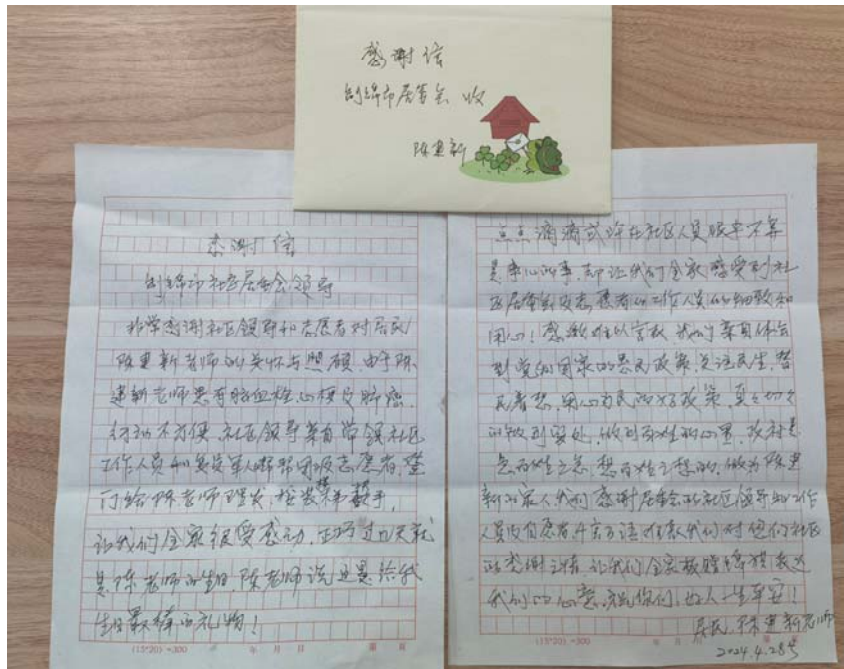 感谢信
居委会 收
陈建新
感谢信
社区居委会领导
非常感谢社区领导和志愿者对居民
陈建新老师的关怀与照顾,由于陈
建新老师患有脑血栓、心梗及肺癌,
行动不方便,社区领导亲自带领社区
工作人员和 军人 志愿者,登
门给陈老师理发,
让我们全家很受感动,正巧过几天就
是陈老师的生日,陈老师说这是给我
生日最棒的礼物!
点点滴滴或许在社区人员眼中不算
是 的事,却让我们全家感受到社
区居委会及志愿者的工作人员的细致和
用心!感激难以言表,我们亲身体会
到党和国家的惠民政策,关注民生,替
民着想,用心为民的好政策,真真切切
的做到实处,做到百姓的心里,
急百姓之急,想百姓之想的,做为陈建
新的家人我们感谢居委会的社区领导的工作
人员及自愿者,千言万语难表我们对他们社区
的感谢之情,让我们全家 表达
我们的心意,祝你们,好人一生平安!
居民:陈建新老师
2024.4.28号
(15*20)=300 年 月 日 第 页
(15*20)=300